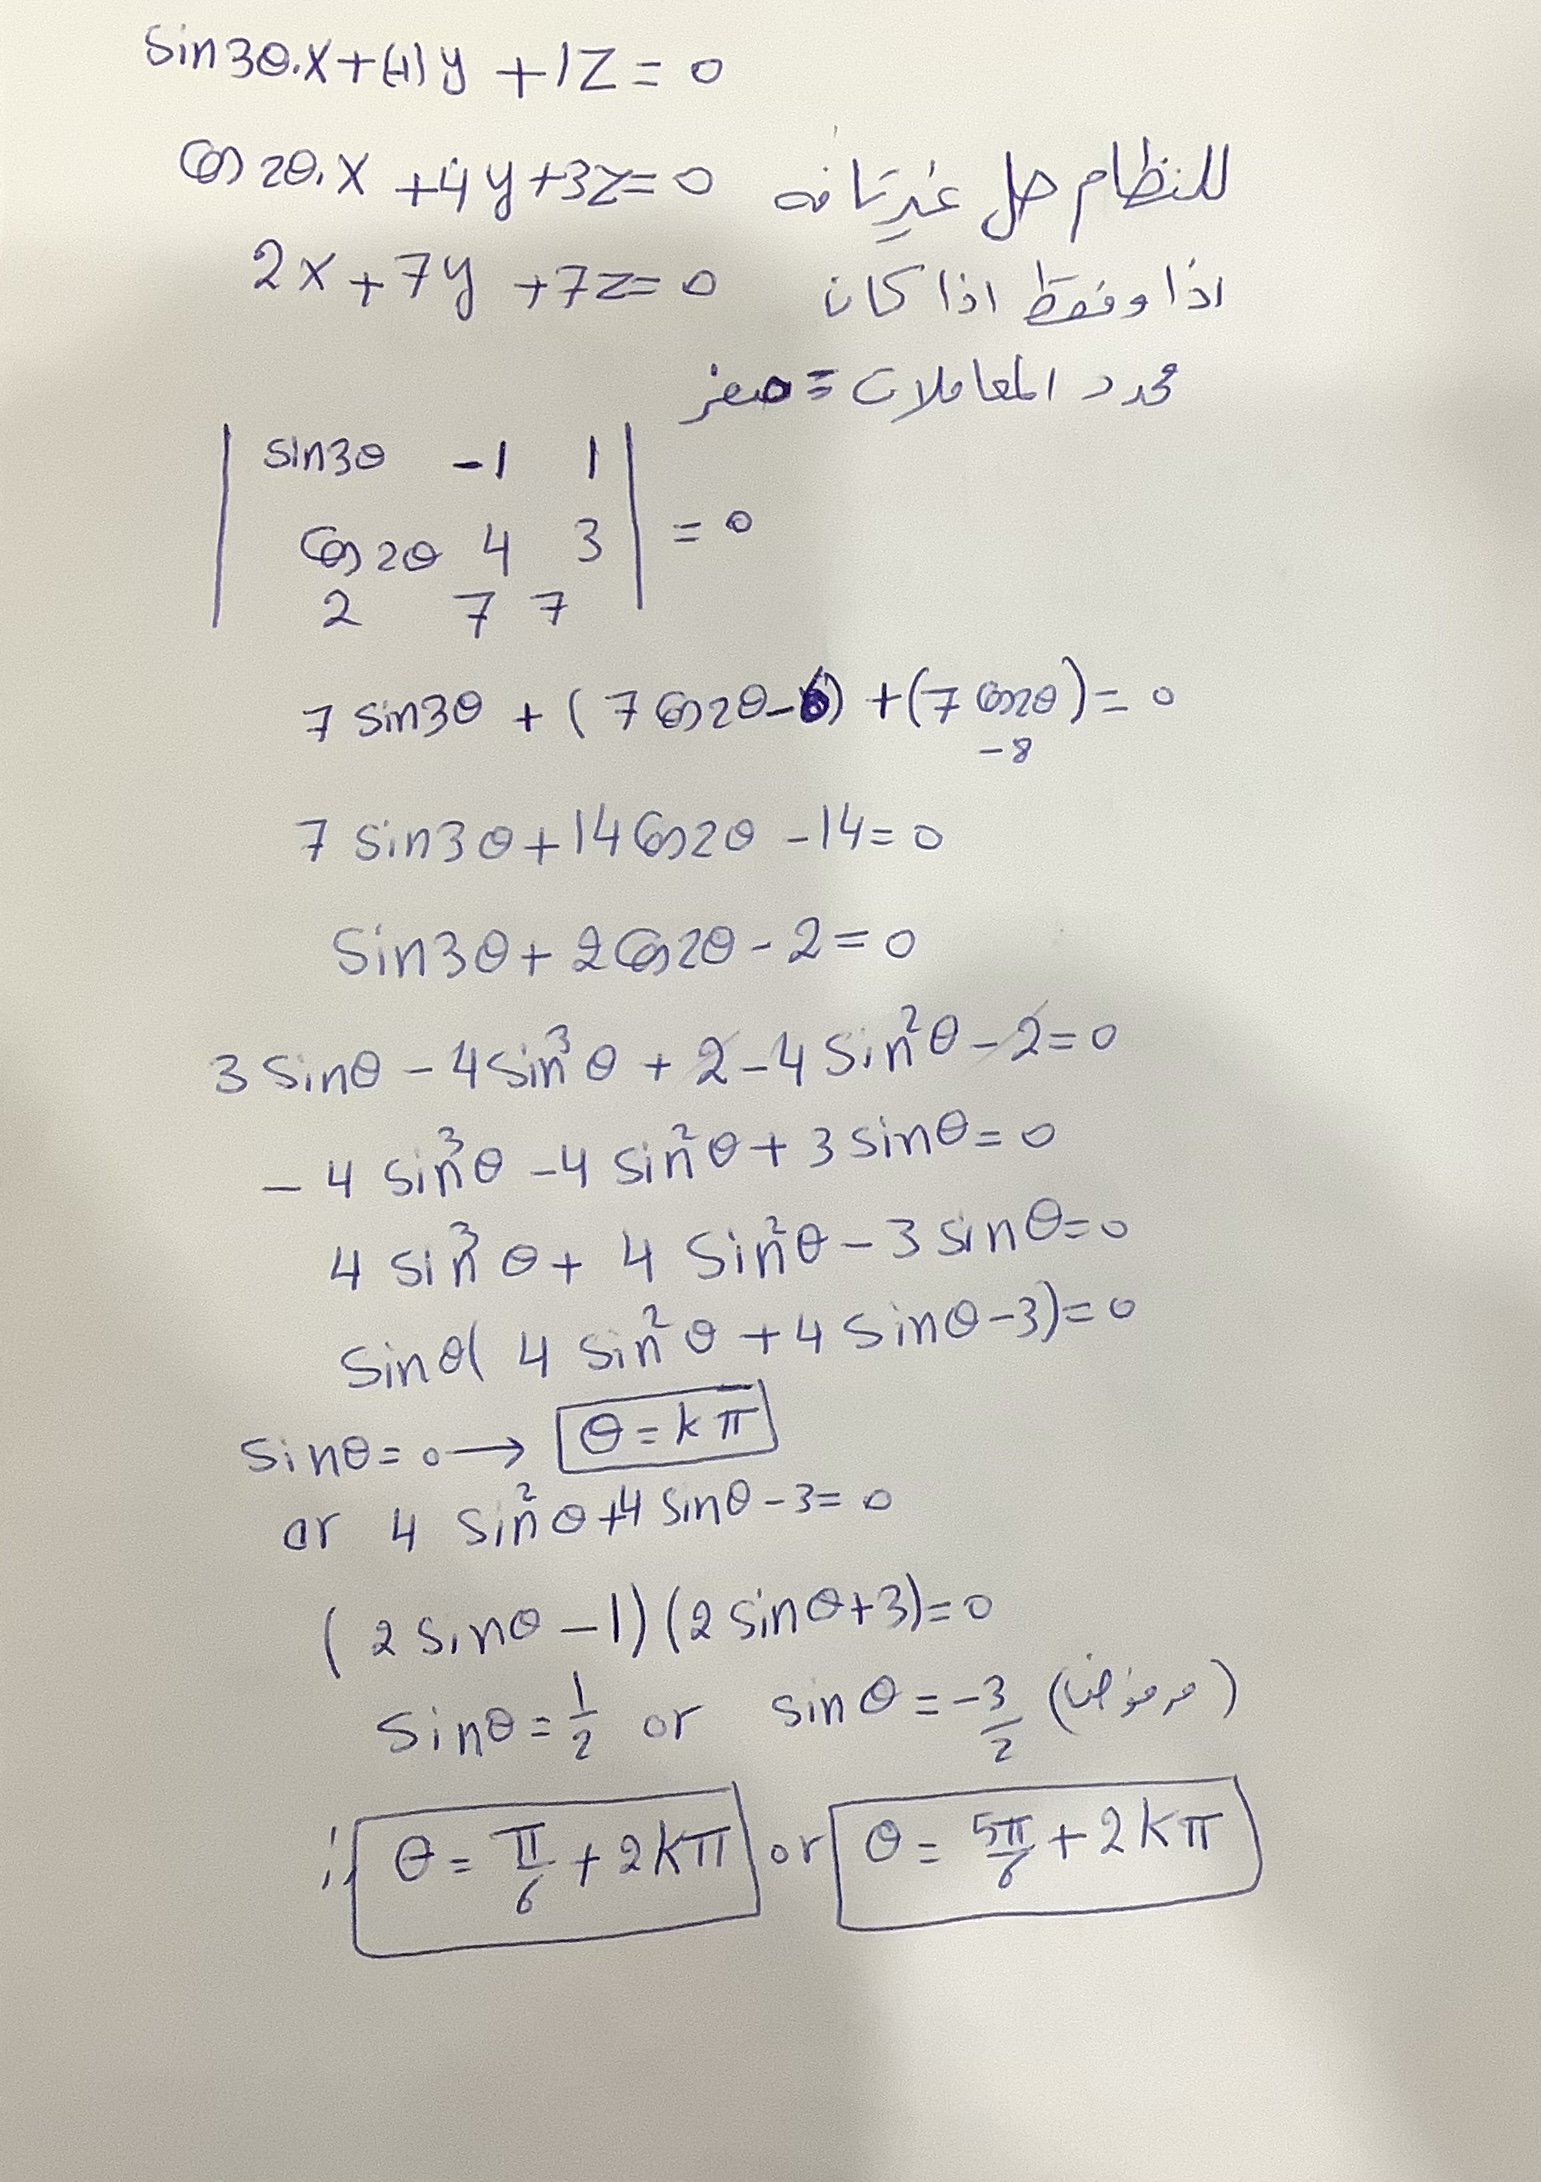 sin3θ.x+(-1)y +1z=0
cos2θ.x +4y+3z=0 للنظام حل غير تافه
2x+7y +7z=0 اذا وفقط اذا كان
محدد المعاملات = صفر
| sin3θ -1 1 |
| cos2θ 4 3 | = 0
| 2 7 7 |
7 sin3θ + (7cos2θ-6) +(7cos2θ)=0
-8
7 sin3θ+14cos2θ -14=0
sin3θ+ 2cos2θ-2=0
3 sinθ - 4sin³θ + 2-4 sin²θ-2=0
- 4 sin³θ -4 sin²θ+3 sinθ=0
4 sin³θ+ 4 sin²θ-3 sinθ=0
sinθ( 4 sin²θ +4 sinθ-3)=0
sinθ=0 → θ=kπ
or 4 sin²θ+4 sinθ-3=0
(2 sinθ -1)(2 sinθ+3)=0
sinθ=1/2 or sinθ=-3/2 (مرفوض)
∴ θ= π/6 +2kπ or θ= 5π/6 +2kπ